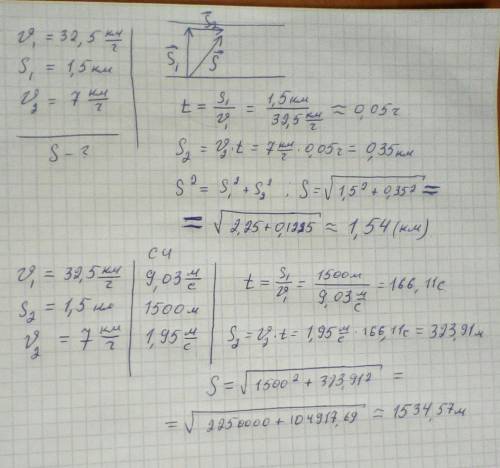 v₁ = 32,5 км/ч
S₁ = 1,5 км
v₂ = 7 км/ч
S - ?
S₂
S₁
S
t = S₁/v₁ = 1,5 км / 32,5 км/ч ≈ 0,05 ч
S₂ = v₂·t = 7 км/ч · 0,05 ч = 0,35 км
S² = S₁² + S₂² ; S = √(1,5² + 0,35²) =
= √(2,25 + 0,1225) ≈ 1,54 (км)
СИ
v₁ = 32,5 км/ч | 9,03 м/с
S₂ = 1,5 км | 1500 м
v₂ = 7 км/ч | 1,95 м/с
t = S₁/v₁ = 1500 м / 9,03 м/с = 166,11 с
S₂ = v₂·t = 1,95 м/с · 166,11 с = 323,91 м
S = √(1500² + 323,91²) =
= √(2250000 + 104917,69) ≈ 1534,57 м